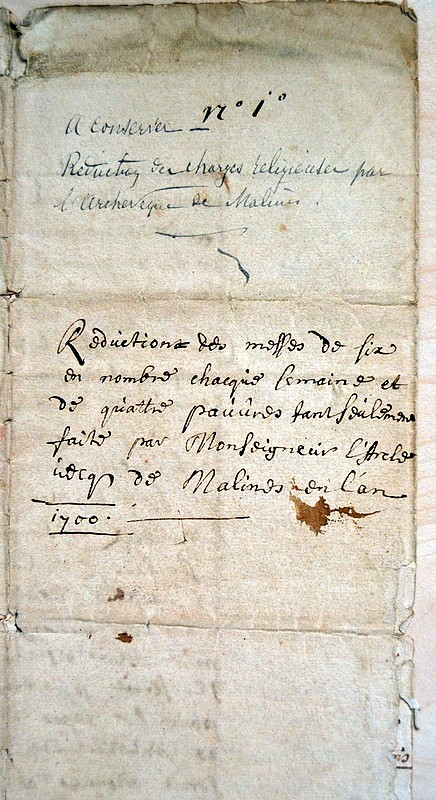 N° 1°
A conserver
Réduction des charges religieuses par
l'Archevêque de Malines.
Reductions des messes de six
en nombre chacque semaine et
de quattre pauûres tant seûlement
faite par Monseigneur L'Arche
ûecq de Malines en L'an
1700.